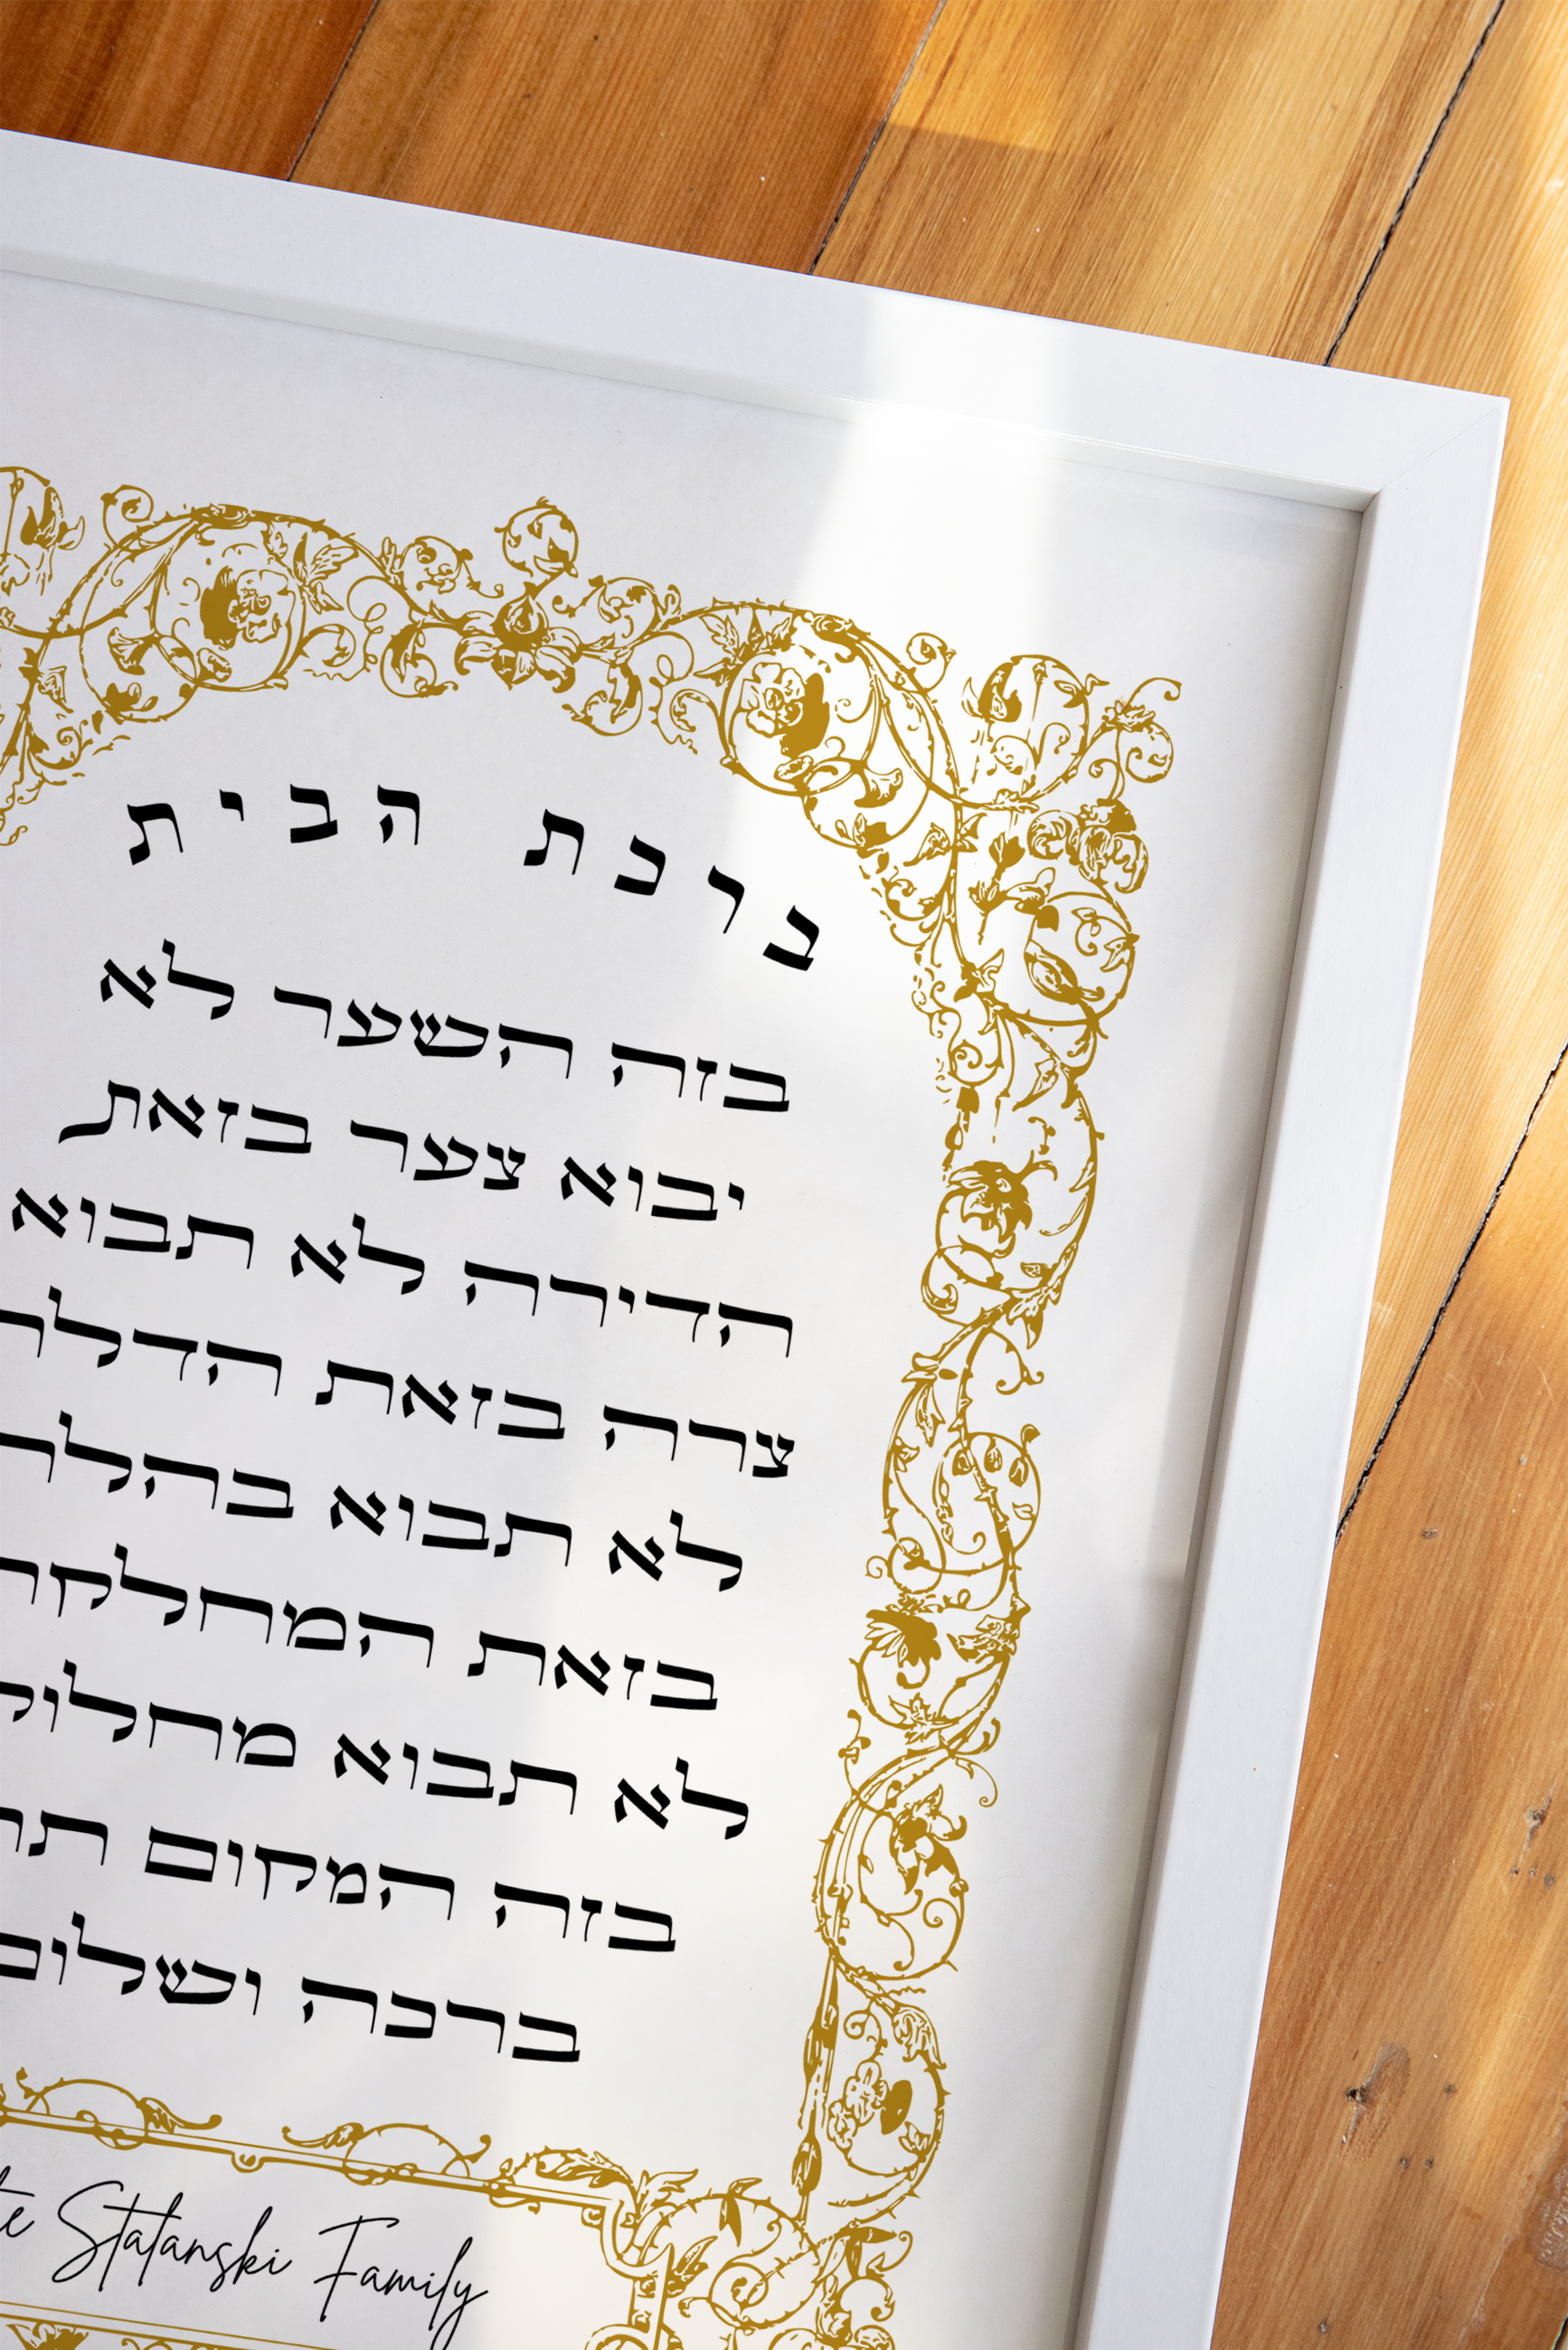 ברכת הבית
בזה השער לא
יבוא צער בזאת
הדירה לא תבוא
צרה בזאת הדלת
לא תבוא
בזאת
לא תבוא
בזה המקום
ברכה ושלום
Stalanski Family